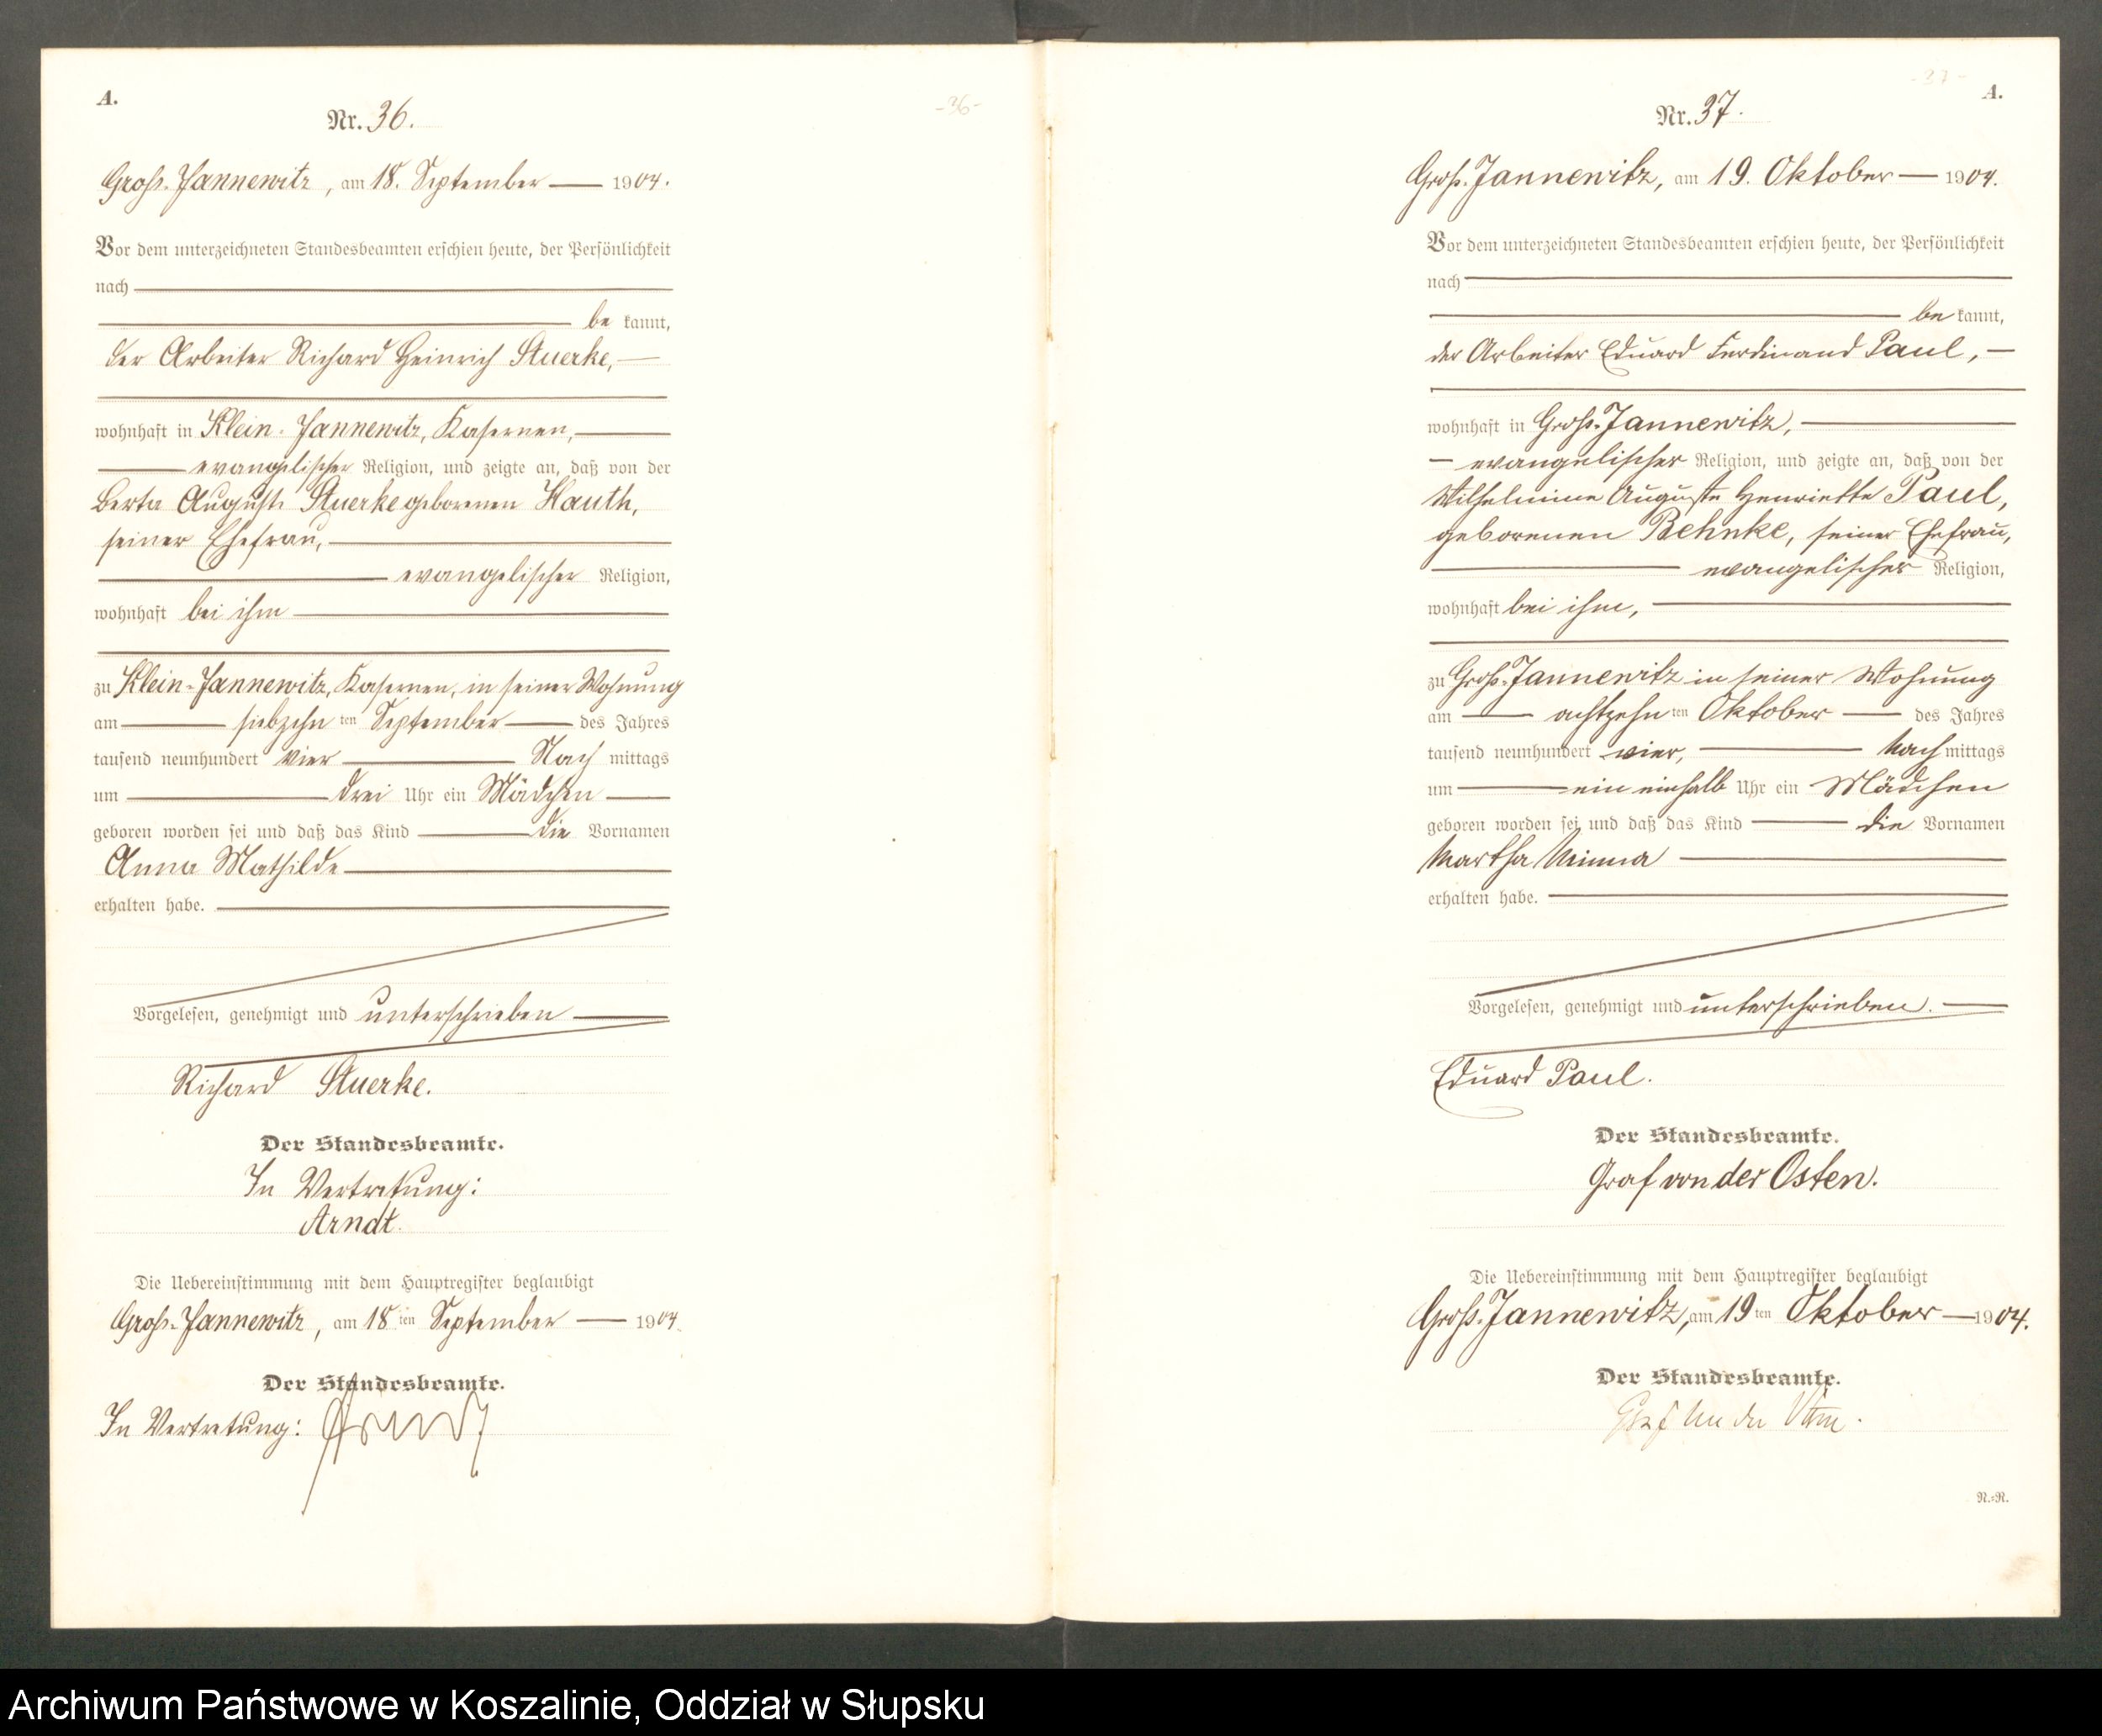 A.
-36-
Nr. 36.
Groß-Jannewitz, am 18. September 1904.
Vor dem unterzeichneten Standesbeamten erschien heute, der Persönlichkeit
nach
be kannt,
der Arbeiter Richard Heinrich Stuerke,
wohnhaft in Klein-Jannewitz, Kasernen,
evangelischer Religion, und zeigte an, daß von der
Berta Auguste Stuerke geborenen Kauth,
seiner Ehefrau,
evangelischer Religion,
wohnhaft bei ihm
zu Klein-Jannewitz, Kasernen, in seiner Wohnung
am siebzehn ten September des Jahres
tausend neunhundert vier Nach mittags
um drei Uhr ein Mädchen
geboren worden sei und daß das Kind die Vornamen
Anna Mathilde
erhalten habe.
Vorgelesen, genehmigt und unterschrieben
Richard Stuerke.
Der Standesbeamte.
In Vertretung:
Arndt.
Die Uebereinstimmung mit dem Hauptregister beglaubigt
Groß-Jannewitz, am 18 ten September 1904.
Der Standesbeamte.
In Vertretung: Arndt
-37-
A.
Nr. 37.
Groß-Jannewitz, am 19. Oktober 1904.
Vor dem unterzeichneten Standesbeamten erschien heute, der Persönlichkeit
nach
be kannt,
der Arbeiter Eduard Ferdinand Paul,
wohnhaft in Groß-Jannewitz,
evangelischer Religion, und zeigte an, daß von der
Wilhelmine Auguste Henriette Paul,
geborenen Behnke, seiner Ehefrau,
evangelischer Religion,
wohnhaft bei ihm,
zu Groß-Jannewitz in seiner Wohnung
am achtzehn ten Oktober des Jahres
tausend neunhundert vier, Nach mittags
um ein einhalb Uhr ein Mädchen
geboren worden sei und daß das Kind die Vornamen
Martha Minna
erhalten habe.
Vorgelesen, genehmigt und unterschrieben.
Eduard Paul.
Der Standesbeamte.
Graf von der Osten.
Die Uebereinstimmung mit dem Hauptregister beglaubigt
Groß-Jannewitz, am 19 ten Oktober 1904.
Der Standesbeamte.
Graf von der Osten.
N.-R.
Archiwum Państwowe w Koszalinie, Oddział w Słupsku